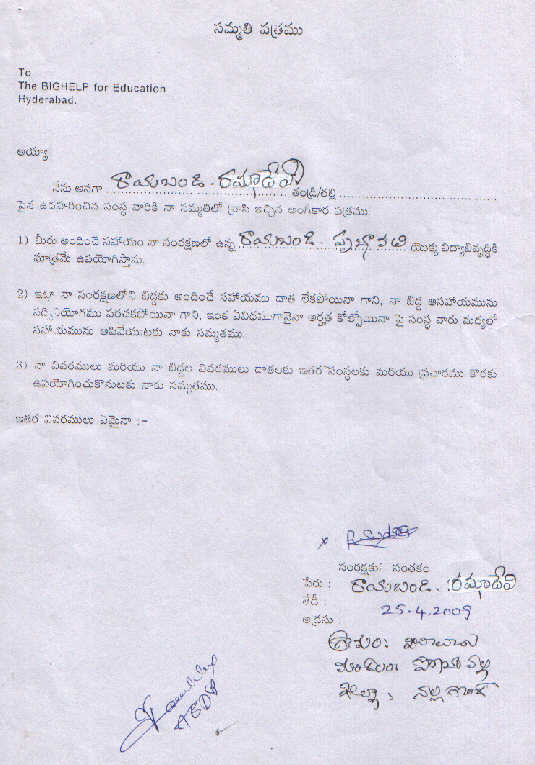 సమ్మతి పత్రము
To
The BIGHELP for Education
Hyderabad.
అయ్యా
నేను అనగా రాయబండి. రమాదేవి తండ్రి/తల్లి
పైన ఉదహరించిన సంస్థ వారికి నా సమ్మతిలో వ్రాసి ఇచ్చిన అంగీకార పత్రము.
1) మీరు అందించే సహాయం నా సంరక్షణలో ఉన్న రాయబండి. ప్రభావతి యొక్క విద్యాభివృద్ధికి
మాత్రమే ఉపయోగిస్తాను.
2) ఇట్లా నా సంరక్షణలోని బిడ్డకు అందించే సహాయము దాత లేకపోయినా గాని, నా బిడ్డ ఆసహాయమును
సద్వినియోగము పరచకపోయినా గాని, ఇంక ఏవిధముగానైనా అర్హత కోల్పోయినా పై సంస్థ వారు మధ్యలో
సహాయమును ఆపివేయుటకు నాకు సమ్మతము.
3) నా వివరములు మరియు నా బిడ్డల వివరములు దాతలకు ఇతర సంస్థలకు మరియు ప్రచారము కొరకు
ఉపయోగించుకొనుటకు నాకు సమ్మతము.
ఇతర వివరములు ఏమైనా :-
x
సంరక్షకుని సంతకం
పేరు : రాయబండి. రమాదేవి
తేదీ : 25-4-2009
అడ్రసు :
గ్రామం:
మండలం:
జిల్లా : నల్లగొండ